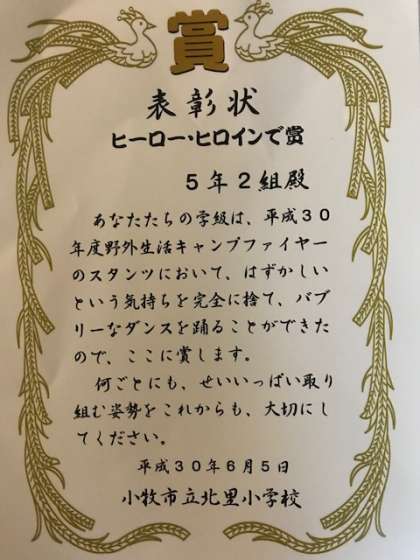 賞
表彰状
ヒーロー・ヒロインで賞
5年2組殿
あなたたちの学級は、平成30
年度野外生活キャンプファイヤー
のスタンツにおいて、はずかしい
という気持ちを完全に捨て、バブ
リーなダンスを踊ることができた
ので、ここに賞します。
何ごとにも、せいいっぱい取り
組む姿勢をこれからも、大切にし
てください。
平成30年6月5日
小牧市立北里小学校